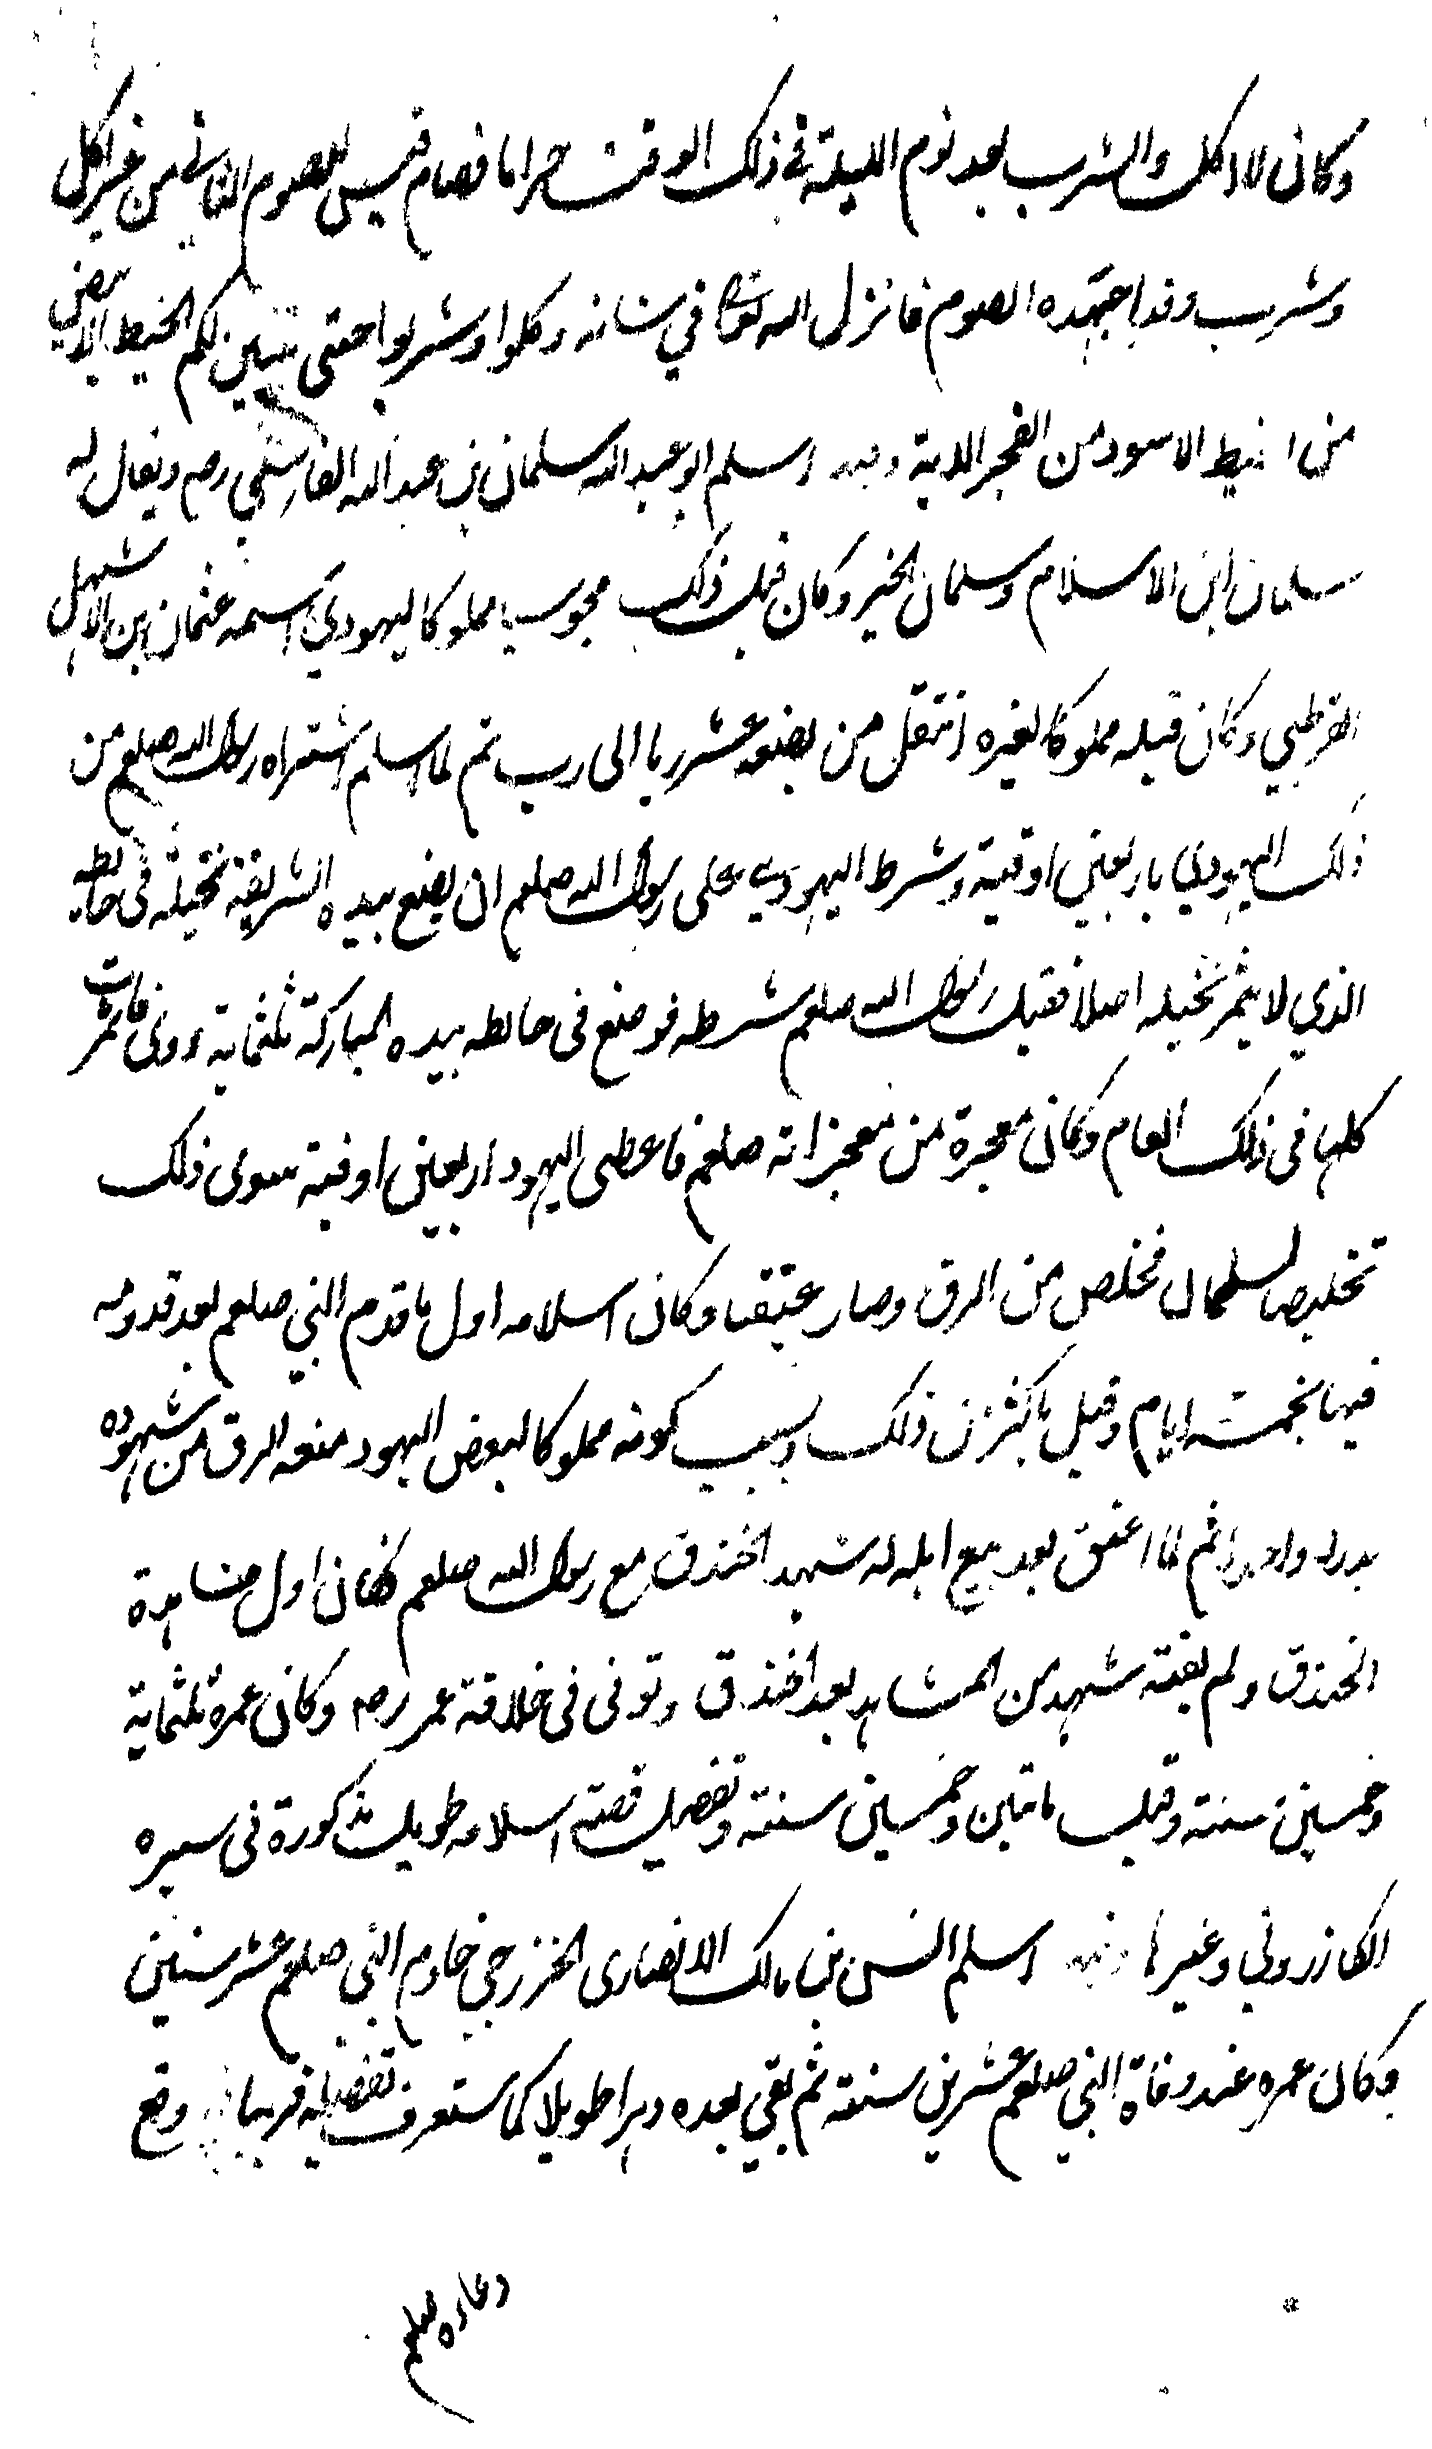 وكان الاكل والشرب بعد نوم الليلة في ذلك الوقت حراما فصام قيس للصوم الثاني من غير اكل
وشرب وقد اجهده الصوم فانزل الله تعالى في شانه وكلوا وشربوا حتى يتبين لكم الخيط الابيض
من الخيط الاسود من الفجر الاية وفيه اسلم ابو عبد الله سلمان بن عبد الله الفارسي رضه ويقال له
سلمان ابن الاسلام وسلمان الخير وكان قبل ذلك مجوسيا مملوكا ليهودي اسمه عثمان ابن الاشهل
القرظي وكان قبله مملوكا لغيره انتقل من بضعة عشر ربا الى رب ثم لما اسلم اشتراه رسول الله صلعم من
ذلك اليهودي باربعين اوقية وشرط اليهودي على رسول الله صلعم ان يضع بيده الشريفة نخيله في حائطه
الذي لا يثمر نخيله اصلا فقبل رسول الله صلعم شرطه فوضع في حائطه بيده المباركة ثلثماية ودي فاثمرت
كلها في ذلك العام وكان معجرة من معجزاته صلعم فاعطى اليهود اربعين اوقية سوى ذلك
تخليصا لسلمان فخلص من الرق وصار عتيقا وكان اسلامه اول ما قدم النبي صلعم بعد قدومه
فيها بخمسة ايام وقيل باكثر من ذلك وبسبب كونه مملوكا لبعض اليهود منعه الرق من شهوده
بدرا واحدا ثم لما اعتق بعد بيع اهله له شهد الخندق مع رسول الله صلعم فكان اول مشاهدة
الخندق ولم يفته مشهد من المشاهد بعد الخندق وتوفى في خلافة عمر رضه وكان عمره ثلثماية
وخمسين سنة وقيل ماتين وخمسين سنة وتفصيل قصة اسلامه طويلة مذكورة في سيره
الكازروني وغيرها وفيه اسلم انس بن مالك الانصارى الخزرجي خادم النبي صلعم عشر سنين
وكان عمره عند وفاة النبي صلعم عشرين سنة ثم بقي بعده دهرا طويلا كما ستعرف تفصيله قريبا في وقع
دعاءه صلعم